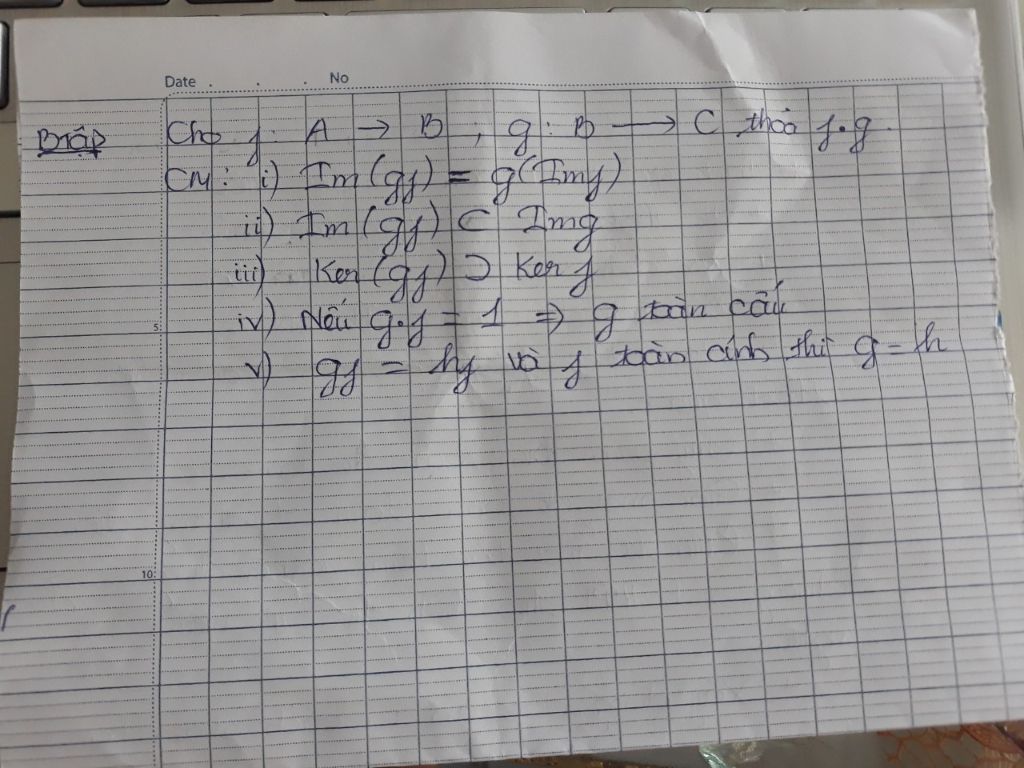 Date . . . No
Btập Cho f: A → B ; g: B → C thỏa f.g.
CM: i) Im (gf) = g(Imf)
ii) Im (gf) ⊂ Img
iii) Ker (gf) ⊃ Ker f
iv) Nếu g.f = 1 ⇒ g toàn cấu
5
v) gf = hf và f toàn ánh thì g = h
10